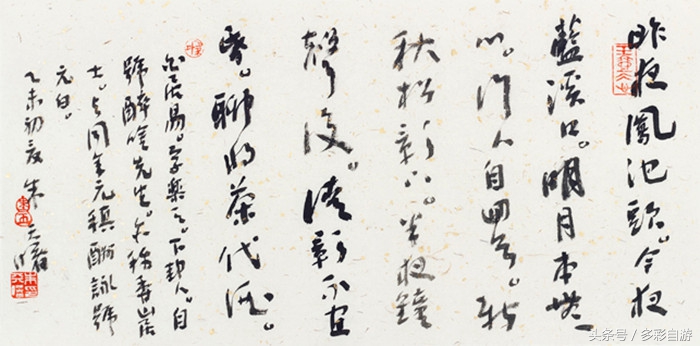 昨夜鳳池頭。今夜
藍溪口。明月本無
心。行人自回首。新
秋松影下。半夜鐘
聲後。清影不宜
昏。聊將茶代酒。
白居易。字樂天。下邽人。自
號醉吟先生。亦稱香山居
士。與同年元稹酬詠號
元白。
乙未初夏 朱天曙
头条号 / 多彩自游